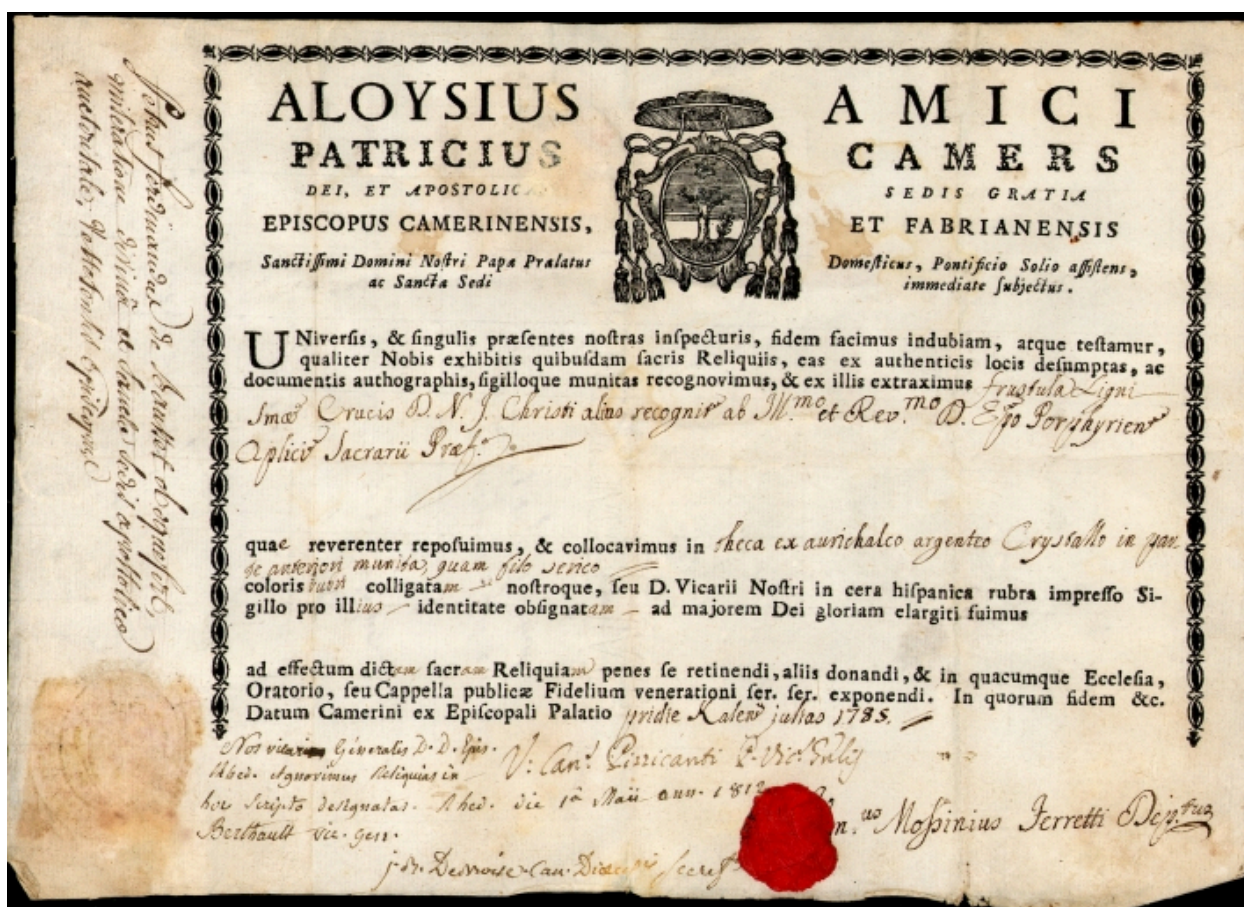 ALOYSIUS AMICI
PATRICIUS CAMERS
DEI, ET APOSTOLICÆ SEDIS GRATIA
EPISCOPUS CAMERINENSIS, ET FABRIANENSIS
Sanctiſſimi Domini Noſtri Papæ Prælatus Domeſticus, Pontificio Solio aſſiſtens,
ac Sanctæ Sedi immediate ſubjectus.
UNiverſis, & ſingulis præſentes noſtras inſpecturis, fidem facimus indubiam, atque teſtamur,
qualiter Nobis exhibitis quibuſdam ſacris Reliquiis, eas ex authenticis locis deſumptas, ac
documentis authographis, ſigilloque munitas recognovimus, & ex illis extraximus fruſtula Ligni
Smæ Crucis D. N. J. Christi alias recognit ab Ill.mo et Rev.mo D. Epo Porphyrien
Aplici Sacrarii Præf.o
quae reverenter repoſuimus, & collocavimus in theca ex aurichalco argenteo Crystallo in par
te anteriori munita, quam filo serico
coloris rubri colligatam noſtroque, ſeu D. Vicarii Noſtri in cera hiſpanica rubra impreſſo Si-
gillo pro illius identitate obſignatam ad majorem Dei gloriam elargiti fuimus
ad effectum dictam ſacram Reliquiam penes ſe retinendi, aliis donandi, & in quacumque Eccleſia,
Oratorio, ſeu Cappella publicæ Fidelium venerationi ſer. ſer. exponendi. In quorum fidem &c.
Datum Camerini ex Epiſcopali Palatio pridie Kalen julias 1785.
Nos vicarius Generalis D. D. Epis.
Rhed. Agnovimus Reliquias in
hoc scripto designatas. Rhed. die 1a Maii ann. 1812
Berthault vic. gen.
V: Can.s Pizzicanti P. Vic.s Gnlis
Mossinius Ferretti Dep.tus
miseratione divina et Sanctæ Sedis apostolicæ
auctoritate,